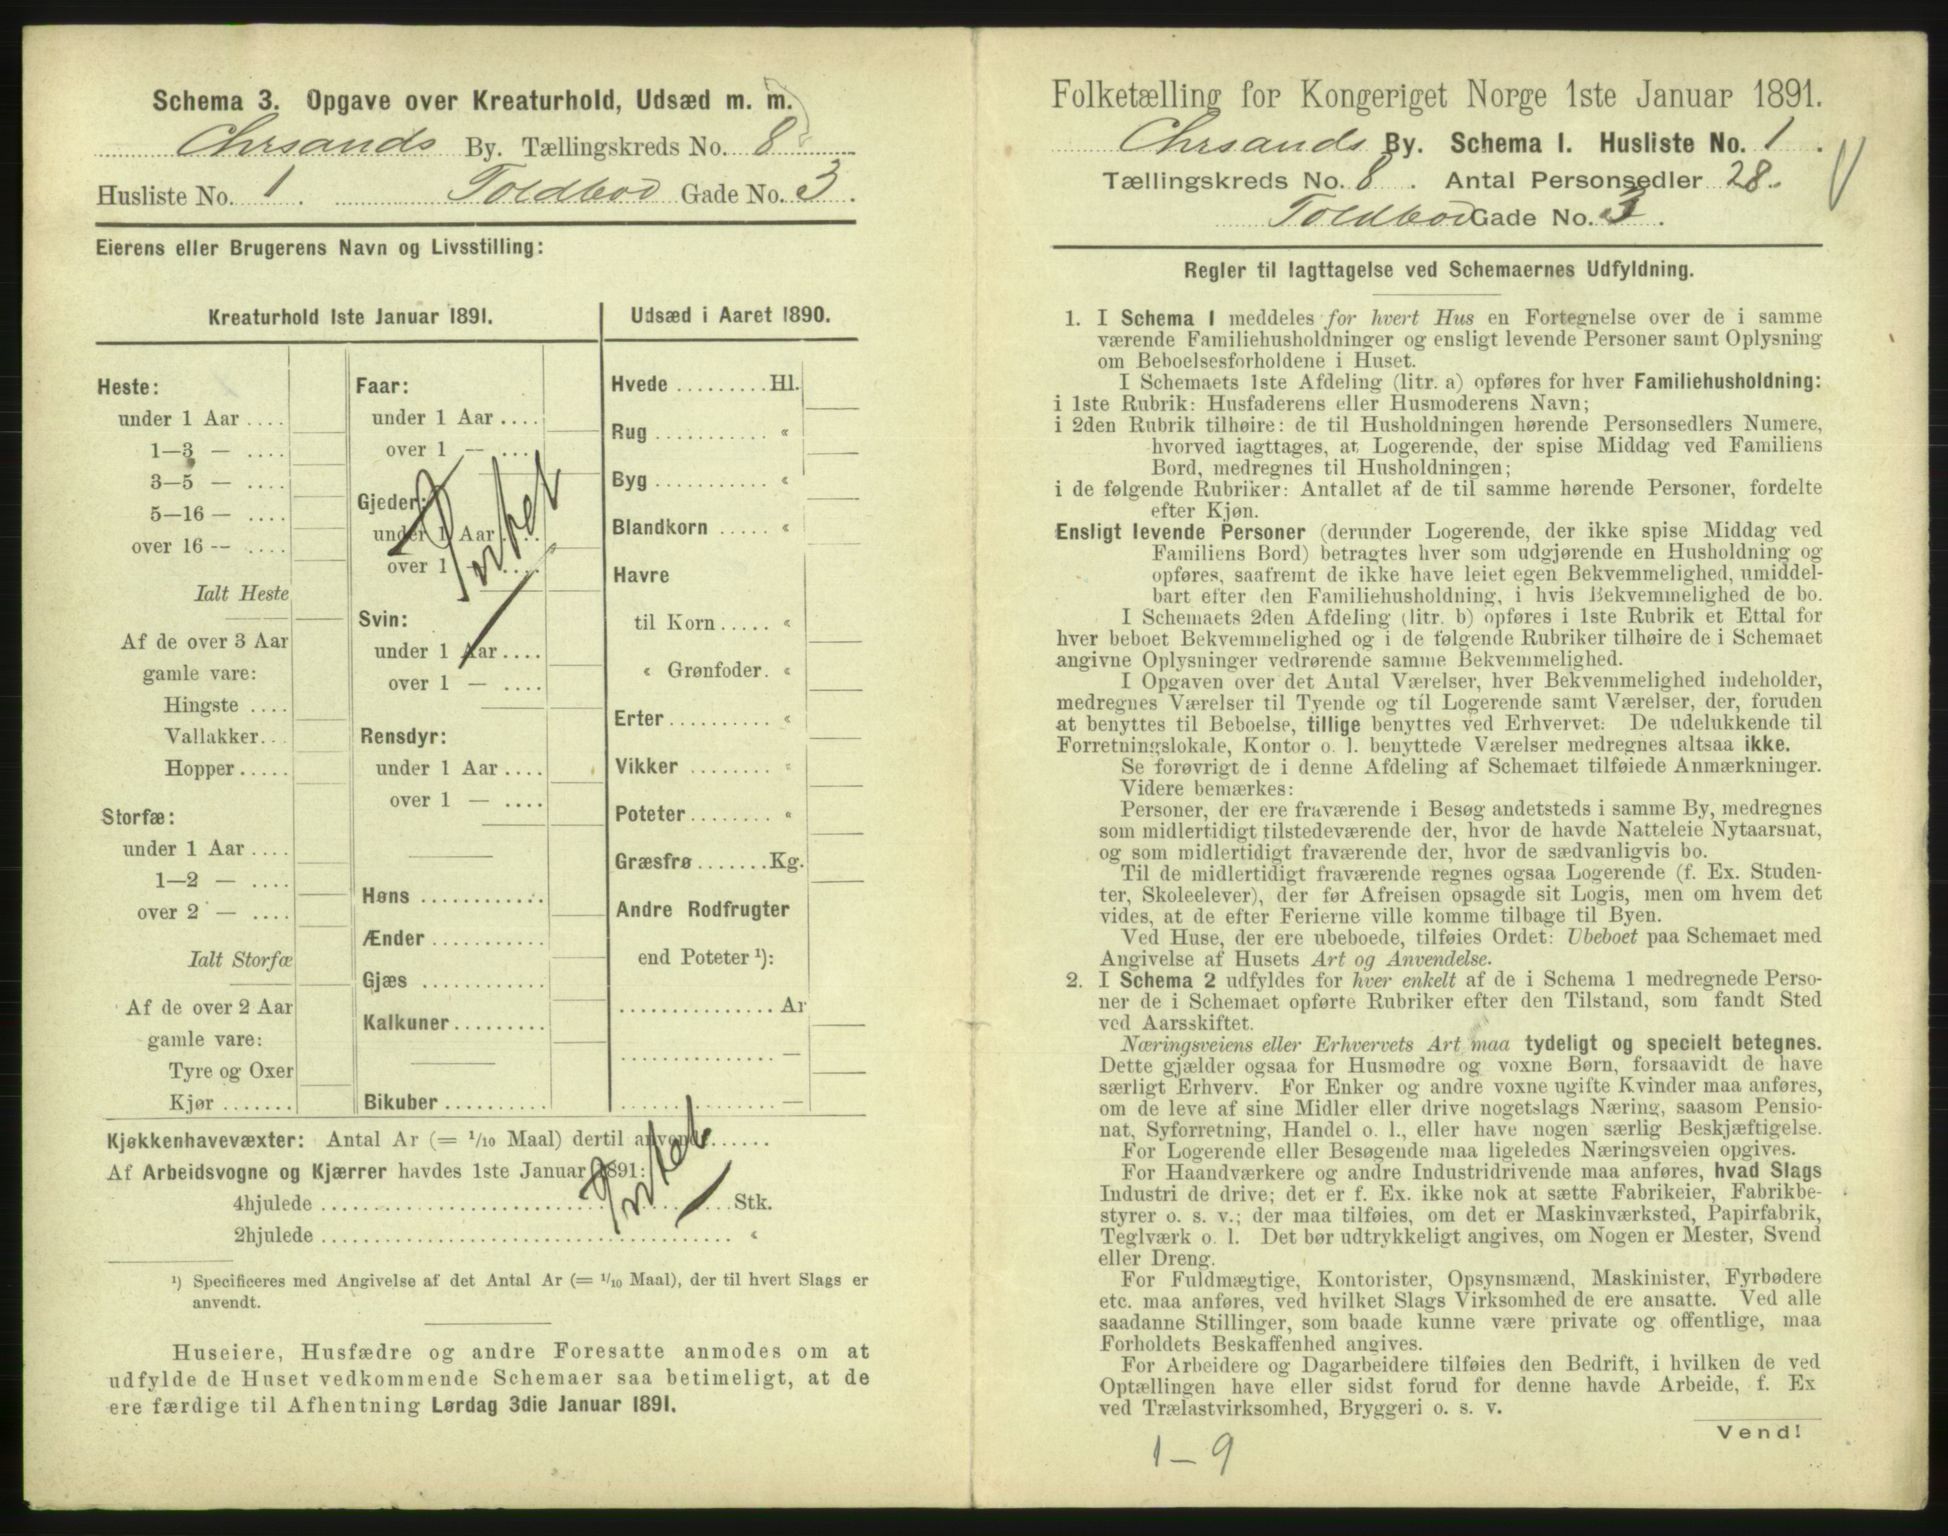 Schema 3. Opgave over Kreaturhold, Udsæd m. m.
Chrsands By. Tællingskreds No. 8
Husliste No. 1. Toldbod Gade No. 3.
Eierens eller Brugerens Navn og Livsstilling:
Kreaturhold 1ste Januar 1891.
Heste:
under 1 Aar ....
1—3 — ....
3—5 — ....
5—16 — ....
over 16 — ....
Ialt Heste
Af de over 3 Aar
gamle vare:
Hingste ....
Vallakker...
Hopper.....
Storfæ:
under 1 Aar ....
1—2 — ....
over 2 — ....
Ialt Storfæ
Af de over 2 Aar
gamle vare:
Tyre og Oxer
Kjør .......
Faar:
under 1 Aar ....
over 1 — ....
Gjeder:
under 1 Aar ....
over 1 — ....
Intet
Svin:
under 1 Aar ....
over 1 — ....
Rensdyr:
under 1 Aar ....
over 1 — ....
Høns ............
Ænder ...........
Gjæs ............
Kalkuner.........
Bikuber ..........
Udsæd i Aaret 1890.
Hvede .........Hl.
Rug ........... «
Byg ........... «
Blandkorn ..... «
Havre
til Korn ..... «
« Grønfoder. «
Erter ......... «
Vikker ........ «
Poteter........ «
Græsfrø .......Kg.
Andre Rodfrugter
end Poteter ¹):
............... Ar
............... —
............... —
Kjøkkenhavevæxter: Antal Ar (= 1/10 Maal) dertil anvendt......
Af Arbeidsvogne og Kjærrer havdes 1ste Januar 1891:
4hjulede ........ Intet ........ Stk.
2hjulede ........................ «
¹) Specificeres med Angivelse af det Antal Ar (= 1/10 Maal), der til hvert Slags er
anvendt.
Huseiere, Husfædre og andre Foresatte anmodes om at
udfylde de Huset vedkommende Schemaer saa betimeligt, at de
ere færdige til Afhentning Lørdag 3die Januar 1891.
Folketælling for Kongeriget Norge 1ste Januar 1891.
Chrsands By. Schema I. Husliste No. 1.
Tællingskreds No. 8. Antal Personsedler 28.
Toldbod Gade No. 3.
Regler til Iagttagelse ved Schemaernes Udfyldning.
1. I Schema I meddeles for hvert Hus en Fortegnelse over de i samme
værende Familiehusholdninger og ensligt levende Personer samt Oplysning
om Beboelsesforholdene i Huset.
I Schemaets 1ste Afdeling (litr. a) opføres for hver Familiehusholdning:
i 1ste Rubrik: Husfaderens eller Husmoderens Navn;
i 2den Rubrik tilhøire: de til Husholdningen hørende Personsedlers Numere,
hvorved iagttages, at Logerende, der spise Middag ved Familiens
Bord, medregnes til Husholdningen;
i de følgende Rubriker: Antallet af de til samme hørende Personer, fordelte
efter Kjøn.
Ensligt levende Personer (derunder Logerende, der ikke spise Middag ved
Familiens Bord) betragtes hver som udgjørende en Husholdning og
opføres, saafremt de ikke have leiet egen Bekvemmelighed, umiddel-
bart efter den Familiehusholdning, i hvis Bekvemmelighed de bo.
I Schemaets 2den Afdeling (litr. b) opføres i 1ste Rubrik et Ettal for
hver beboet Bekvemmelighed og i de følgende Rubriker tilhøire de i Schemaet
angivne Oplysninger vedrørende samme Bekvemmelighed.
I Opgaven over det Antal Værelser, hver Bekvemmelighed indeholder,
medregnes Værelser til Tyende og til Logerende samt Værelser, der, foruden
at benyttes til Beboelse, tillige benyttes ved Erhvervet: De udelukkende til
Forretningslokale, Kontor o. l. benyttede Værelser medregnes altsaa ikke.
Se forøvrigt de i denne Afdeling af Schemaet tilføiede Anmærkninger.
Videre bemærkes:
Personer, der ere fraværende i Besøg andetsteds i samme By, medregnes
som midlertidigt tilstedeværende der, hvor de havde Natteleie Nytaarsnat,
og som midlertidigt fraværende der, hvor de sædvanligvis bo.
Til de midlertidigt fraværende regnes ogsaa Logerende (f. Ex. Studen-
ter, Skoleelever), der før Afreisen opsagde sit Logis, men om hvem det
vides, at de efter Ferierne ville komme tilbage til Byen.
Ved Huse, der ere ubeboede, tilføies Ordet: Ubeboet paa Schemaet med
Angivelse af Husets Art og Anvendelse.
2. I Schema 2 udfyldes for hver enkelt af de i Schema 1 medregnede Perso-
ner de i Schemaet opførte Rubriker efter den Tilstand, som fandt Sted
ved Aarsskiftet.
Næringsveiens eller Erhvervets Art maa tydeligt og specielt betegnes.
Dette gjælder ogsaa for Husmødre og voxne Børn, forsaavidt de have
særligt Erhverv. For Enker og andre voxne ugifte Kvinder maa anføres,
om de leve af sine Midler eller drive nogetslags Næring, saasom Pensio-
nat, Syforretning, Handel o. l., eller have nogen særlig Beskjæftigelse.
For Logerende eller Besøgende maa ligeledes Næringsveien opgives.
For Haandværkere og andre Industridrivende maa anføres, hvad Slags
Industri de drive; det er f. Ex. ikke nok at sætte Fabrikeier, Fabrikbe-
styrer o. s. v.; der maa tilføies, om det er Maskinværksted, Papirfabrik,
Teglværk o. l. Det bør udtrykkeligt angives, om Nogen er Mester, Svend
eller Dreng.
For Fuldmægtige, Kontorister, Opsynsmænd, Maskinister, Fyrbødere
etc. maa anføres, ved hvilket Slags Virksomhed de ere ansatte. Ved alle
saadanne Stillinger, som baade kunne være private og offentlige, maa
Forholdets Beskaffenhed angives.
For Arbeidere og Dagarbeidere tilføies den Bedrift, i hvilken de ved
Optællingen have eller sidst forud for denne havde Arbeide, f. Ex
ved Trælastvirksomhed, Bryggeri o. s. v.
Vend!
1 – 9